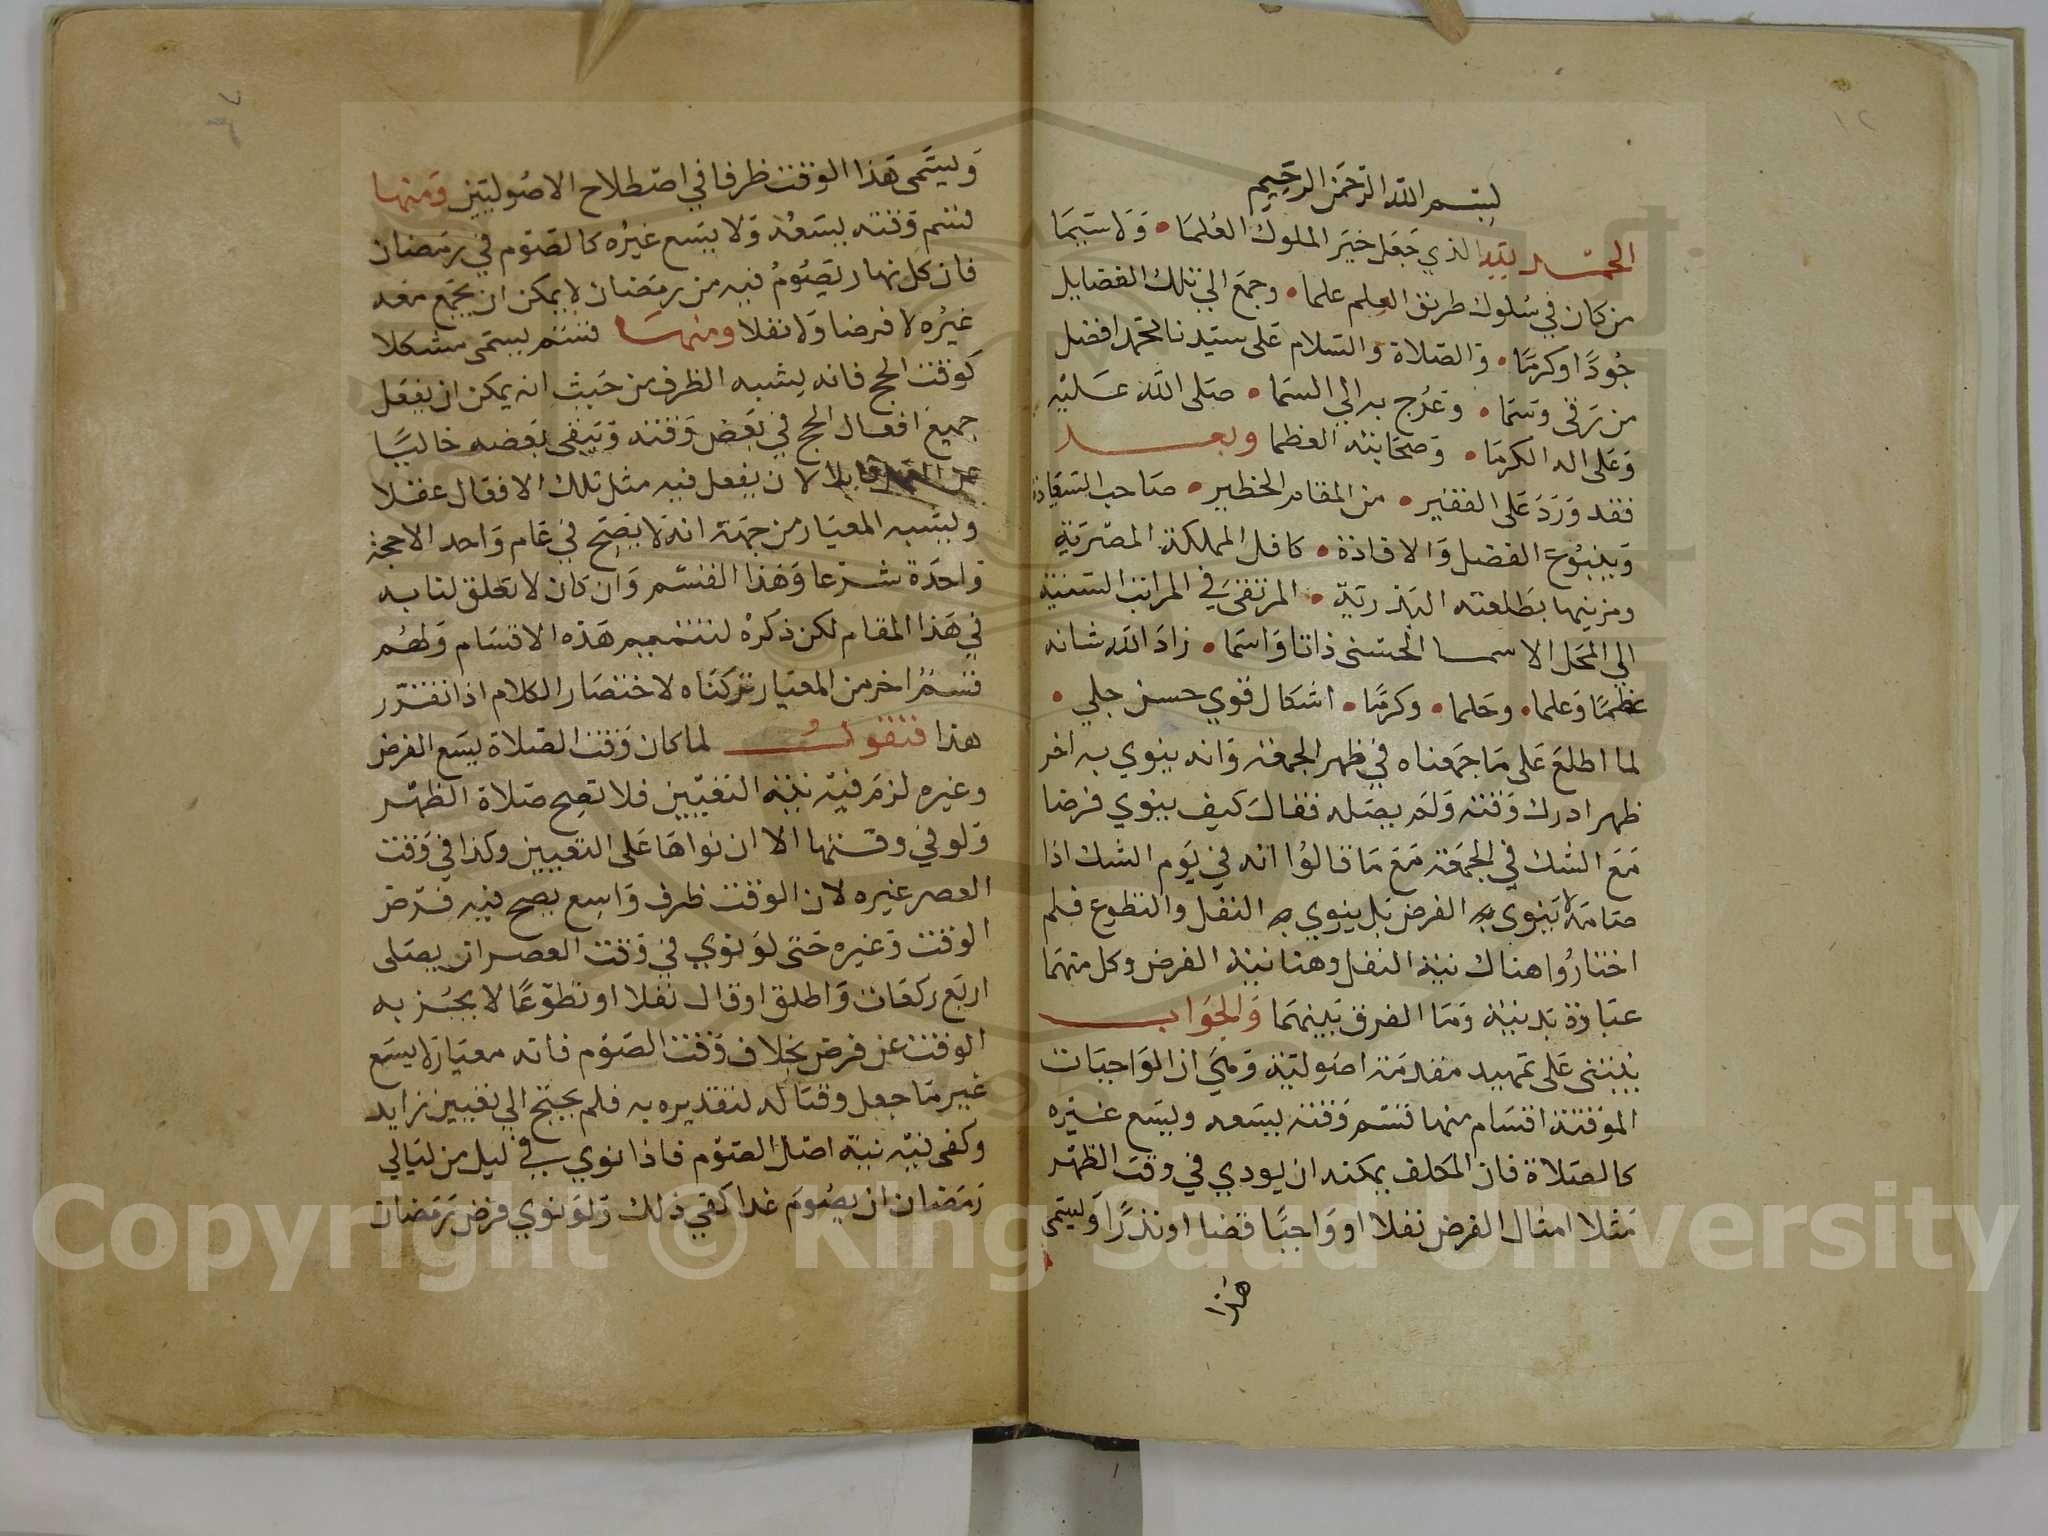 ١٢
بسم الله الرحمن الرحيم
الحمد لله الذي جعل خير الملوك العلما • ولا سيما
من كان في سلوك طريق العلم علما • وجمع الي تلك الفضايل
جودا وكرما • والصلاة والسلام على سيدنا محمد افضل
من ترقى وسما • وعرج به الي السما • صلى الله عليه
وعلى اله الكرما • وصحابته العظما وبعد
فقد ورد على الفقير • من المقام الخطير • صاحب السعادة
وينبوع الفضل والافادة • كافل المملكة المصرية
ومزينها بطلعته البدرية • المرتقى في المراتب السنية
الي المحل الاسما الحسنى ذاتا واسما • زاد الله شانه
عظما وعلما • وحلما • وكرما • اشكال قوي حسن جلي •
لما اطلع على ما جمعناه في ظهر الجمعة وانه ينوي به اخر
ظهر ادرك وقته ولم يصله فقال كيف ينوي فرضا
مع الشك في الجمعة مع ما قالوا انه في يوم الشك اذا
صامه لا ينوي به الفرض بل ينوي به النفل والتطوع فلم
اختاروا هناك نية النفل وهنا نية الفرض وكل منهما
عبادة بدنية وما الفرق بينهما والجواب
ينبني على تمهيد مقدمة اصولية وهي ان الواجبات
الموقتة اقسام منها قسم وقته يسعه ويسع غيره
كالصلاة فان المكلف يمكنه ان يودي في وقت الظهر
مثلا امثال الفرض نفلا او واجبا قضا او نذرا وليسمى
هذا
ويسمى هذا الوقت ظرفا في اصطلاح الاصوليين ومنها
قسم وقته يسعه ولا يسع غيره كالصوم في رمضان
فان كل نهار يصوم فيه من رمضان لا يمكن ان يجمع معه
غيره لا فرضا ولا نفلا ومنها قسم يسمى مشكلا
كوقت الحج فانه يشبه الظرف من حيث انه يمكن ان يفعل
جميع افعال الحج في بعض وقته ويبقى بعضه خاليا
لان يفعل فيه مثل تلك الافعال عقلا
ويشبه المعيار من جهة انه لا يصح في عام واحد الا حجة
واحدة شرعا وهذا القسم وان كان لا تعلق لنا به
في هذا المقام لكن ذكره لتتميم هذه الاقسام ولهم
قسم اخر من المعيار تركناه لاختصار الكلام اذا تقرر
هذا فنقول لما كان وقت الصلاة يسع الفرض
وغيره لزم فيه نية التعيين فلا تصح صلاة الظهر
ولو في وقتها الا ان نواها على التعيين وكذا في وقت
العصر غيره لان الوقت ظرف واسع يصح فيه فرض
الوقت وغيره حتى لو نوي في وقت العصر ان يصلى
اربع ركعات واطلق او قال نفلا او تطوعا لا يجزيه
الوقت عن فرض بخلاف وقت الصوم فانه معيار لا يسع
غير ما جعل وقتا له لتقديره به فلم يحتج الي تعيين زايد
وكفى نية نية اصل الصوم فاذا نوي في ليل من ليالي
رمضان ان يصوم غدا كفي ذلك ولو نوي فرض رمضان
Copyright © King Saud University